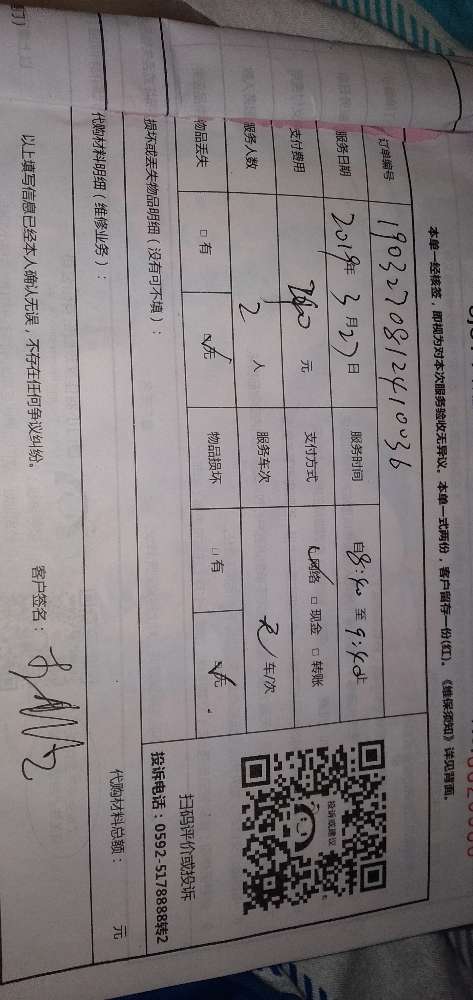 本单一经核签，即视为对本次服务验收无异议。本单一式两份，客户留存一份(红)。《维保须知》详见背面。
订单编号 1903270812410036
服务日期 2019年3月27日 服务时间 自8:40至9:40止
支付费用 元 支付方式 ☑网络 □现金 □转账
服务人数 2 人 服务车次 2 车/次
物品丢失 □有 ☑无 物品损坏 □有 ☑无
损坏或丢失物品明细（没有可不填）：
代购材料明细（维修业务）：
代购材料总额： 元
以上填写信息已经本人确认无误，不存在任何争议纠纷。 客户签名：
投诉或建议
扫码评价或投诉
投诉电话：0592-5178888转2